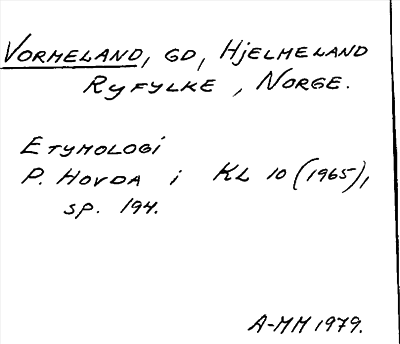 VORMELAND, GD, HJELMELAND
RYFYLKE, NORGE.
ETYMOLOGI
P. HOVDA i KL 10 (1965),
sp. 194.
A-MM 1979.